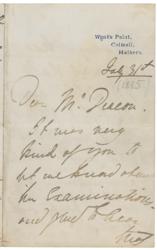 Wynd's Point,
Colwall,
Malvern.
July 31st
1885
Dear Mr
It was very
kind of you to
let me know about
the Examinations
and glad to hear
they